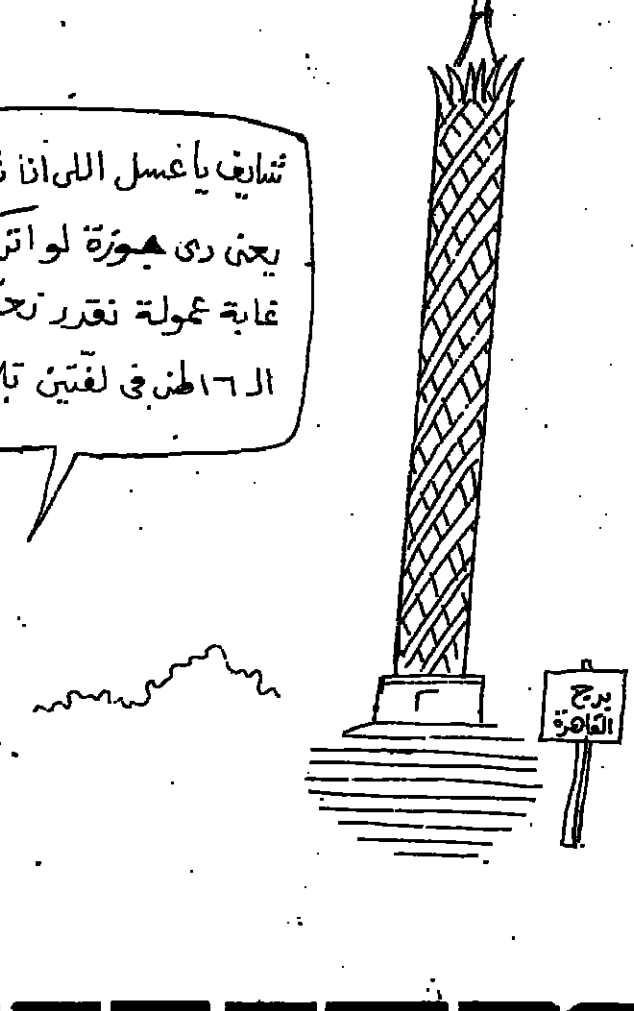 شايف يا عسل اللى انا
يعنى دى جوزة لو
غابة عمولة نقدر
الـ ١٦ طن فى لفتين
برج
القاهرة